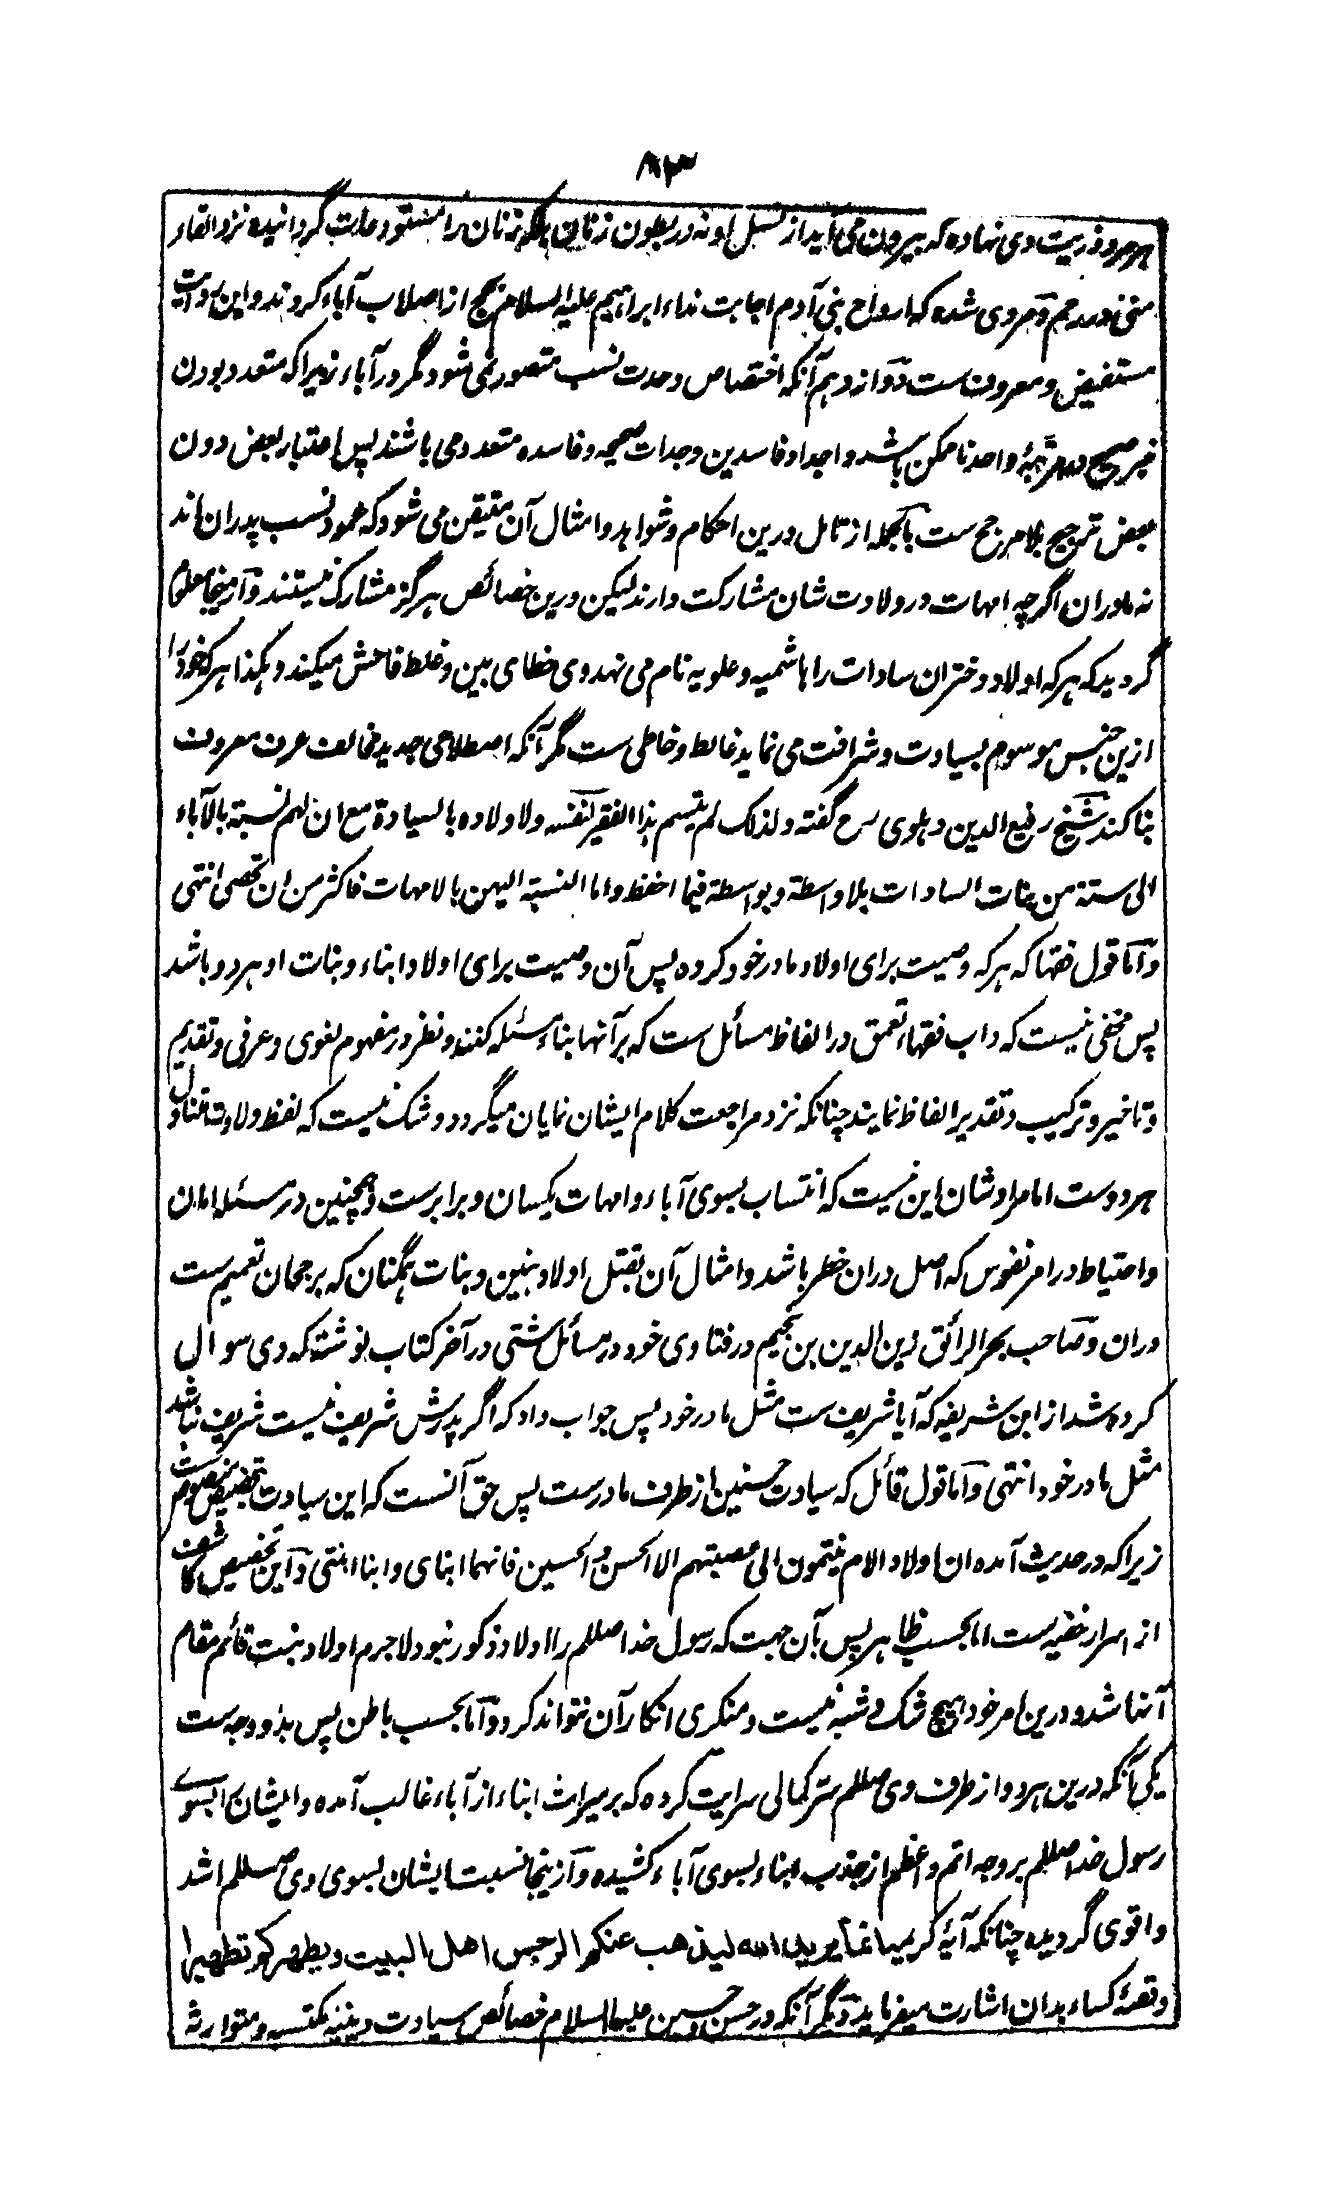 ۸۳
هر مرد ذریت وی نهاده که بیرون می آید از نسل او نه در بطون زنان بلکه زنان را مستودعات گردانیده نزد القاء
منی در رحم و مروی شده که ارواح بنی آدم اجابت نداء ابراهیم علیه السلام بحج از اصلاب آباء کردند و این روایت
مستفیض و معروفست دوازدهم آنکه اختصاص وحدت نسب متصور نمی شود مگر در آباء زیرا که متعدد بودن
غیر صحیح در مرتبهٔ واحد ناممکن باشد و اجداد فاسدین و جدات صحیحه و فاسده متعدد می باشند پس اعتبار بعض دون
بعض ترجیح بلا مرجح ست بالجمله از تامل درین احکام و شواهد و امثال آن متیقن می شود که عمود نسب پدران اند
نه مادران اگرچه امهات در ولادت شان مشارکت دارند لیکن درین خصائص هرگز مشارک نیستند و ازینجا معلوم
گردید که هر که اولاد دختران سادات را هاشمیه و علویه نام می نهد وی خطای بین و غلط فاحش میکند و هکذا هر که خود را
ازین جنس موسوم بسیادت و شرافت می نماید غالط و خاطی ست مگر آنکه اصطلاحی جدید مخالف عرف معروف
بنا کند شیخ رفیع الدین دهلوی رح گفته ولذلک لم یتسم هذا الفقیر لنفسه ولا ولاده بالسیادة مع ان لهم نسبة بالآباء
الی ستة من بنات السادات بلا واسطة و بواسطة فیما احفظ و اما النسبة الیهن بالامهات فاکثر من ان تحصی انتهی
و اما قول فقها که هر که وصیت برای اولاد مادر خود کرده پس آن وصیت برای اولاد ابناء و بنات او هر دو باشد
پس مخفی نیست که داب فقهاء تعمق در الفاظ مسائل ست که بر آنها بناء مسئله کنند و نظر در مفهوم لغوی و عرفی و تقدیم
و تاخیر و ترکیب و تقدیر الفاظ نمایند چنانکه نزد مراجعت کلام ایشان نمایان میگردد و شک نیست که لفظ ولادت متناول
هر دوست اما مراد شان این نیست که انتساب بسوی آباء و امهات یکسان و برابرست و همچنین در مسئله امان
و احتیاط در امر نفوس که اصل دران خطر باشد و امثال آن بقتل اولاد بنین و بنات همگنان که برجحان تعمیم ست
دران و صاحب بحر الرائق زین الدین بن نجیم در فتاوی خود در مسائل شتی در آخر کتاب نوشته که وی سوال
کرده شد از ابن شریفه که آیا شریف ست مثل مادر خود پس جواب داد که اگر پدرش شریف نیست شریف نباشد
مثل مادر خود انتهی و اما قول قائل که سیادت حسنین از طرف مادرست پس حق آنست که این سیادت بتخصیص منصوص ست
زیرا که در حدیث آمده ان اولاد الام ینتمون الی عصبتهم الا الحسن و الحسین فانهما ابنای و ابنا ابنتی و این تخصیص کاشف
از اسرار خفیه ست اما بحسب ظاهر پس بآن جهت که رسول خدا صللم را اولاد ذکور نبود لاجرم اولاد بنت قائم مقام
آنها شد و درین امر خود هیچ شک و شبه نیست و منکری انکار آن نتواند کرد و اما بحسب باطن پس بدو وجه ست
یکی آنکه درین هر دو از طرف وی صللم سر کمالی سرایت کرده که بر میراث ابناء از آباء غالب آمده و ایشان را بسوے
رسول خدا صللم بر وجه اتم و اعظم از جذب ابناء بسوی آباء کشیده و ازینجا نسبت ایشان بسوی وی صللم اشد
و اقوی گردیده چنانکه آیۂ کریمه انما یرید الله لیذهب عنکم الرجس اهل البیت و یطهرکم تطهیرا
و قصۂ کساء بدان اشارت میفرماید دیگر آنکه در حسن و حسین علیهما السلام خصائص سیادت دینیه مکتسبه و متوارثه